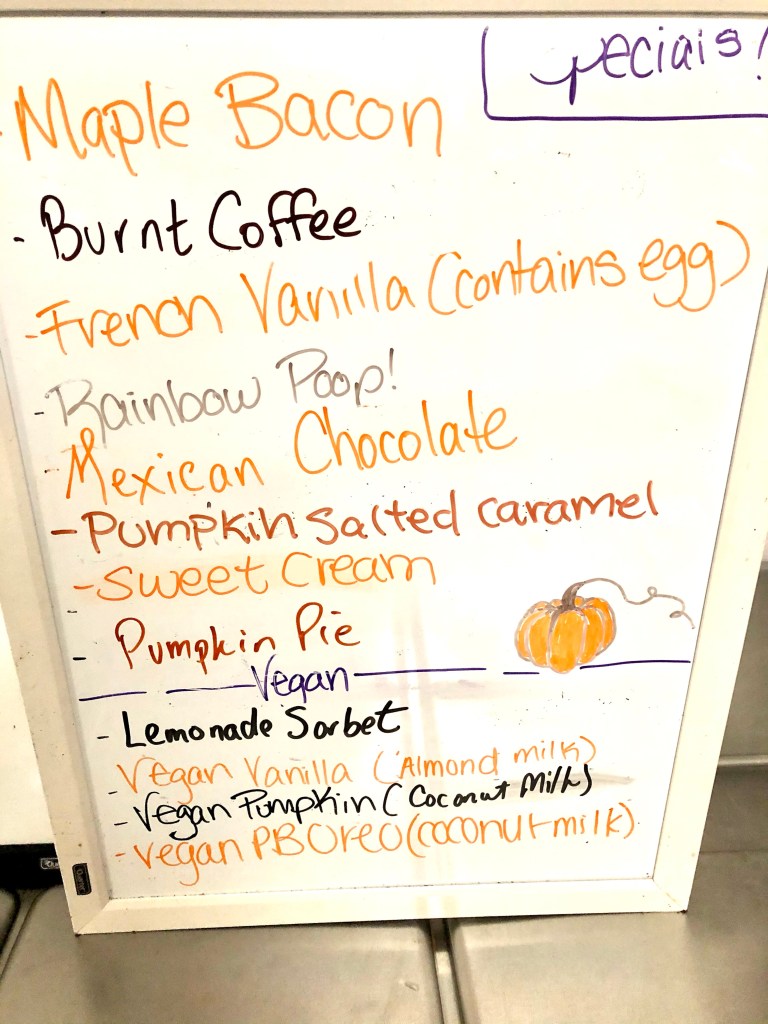 Specials!
- Maple Bacon
- Burnt Coffee
- French Vanilla (contains egg)
- Rainbow Poop!
- Mexican Chocolate
- Pumpkin Salted Caramel
- Sweet Cream
- Pumpkin Pie
Vegan
- Lemonade Sorbet
- Vegan Vanilla (Almond milk)
- Vegan Pumpkin (Coconut Milk)
- Vegan PB Oreo (coconut milk)
Quartet